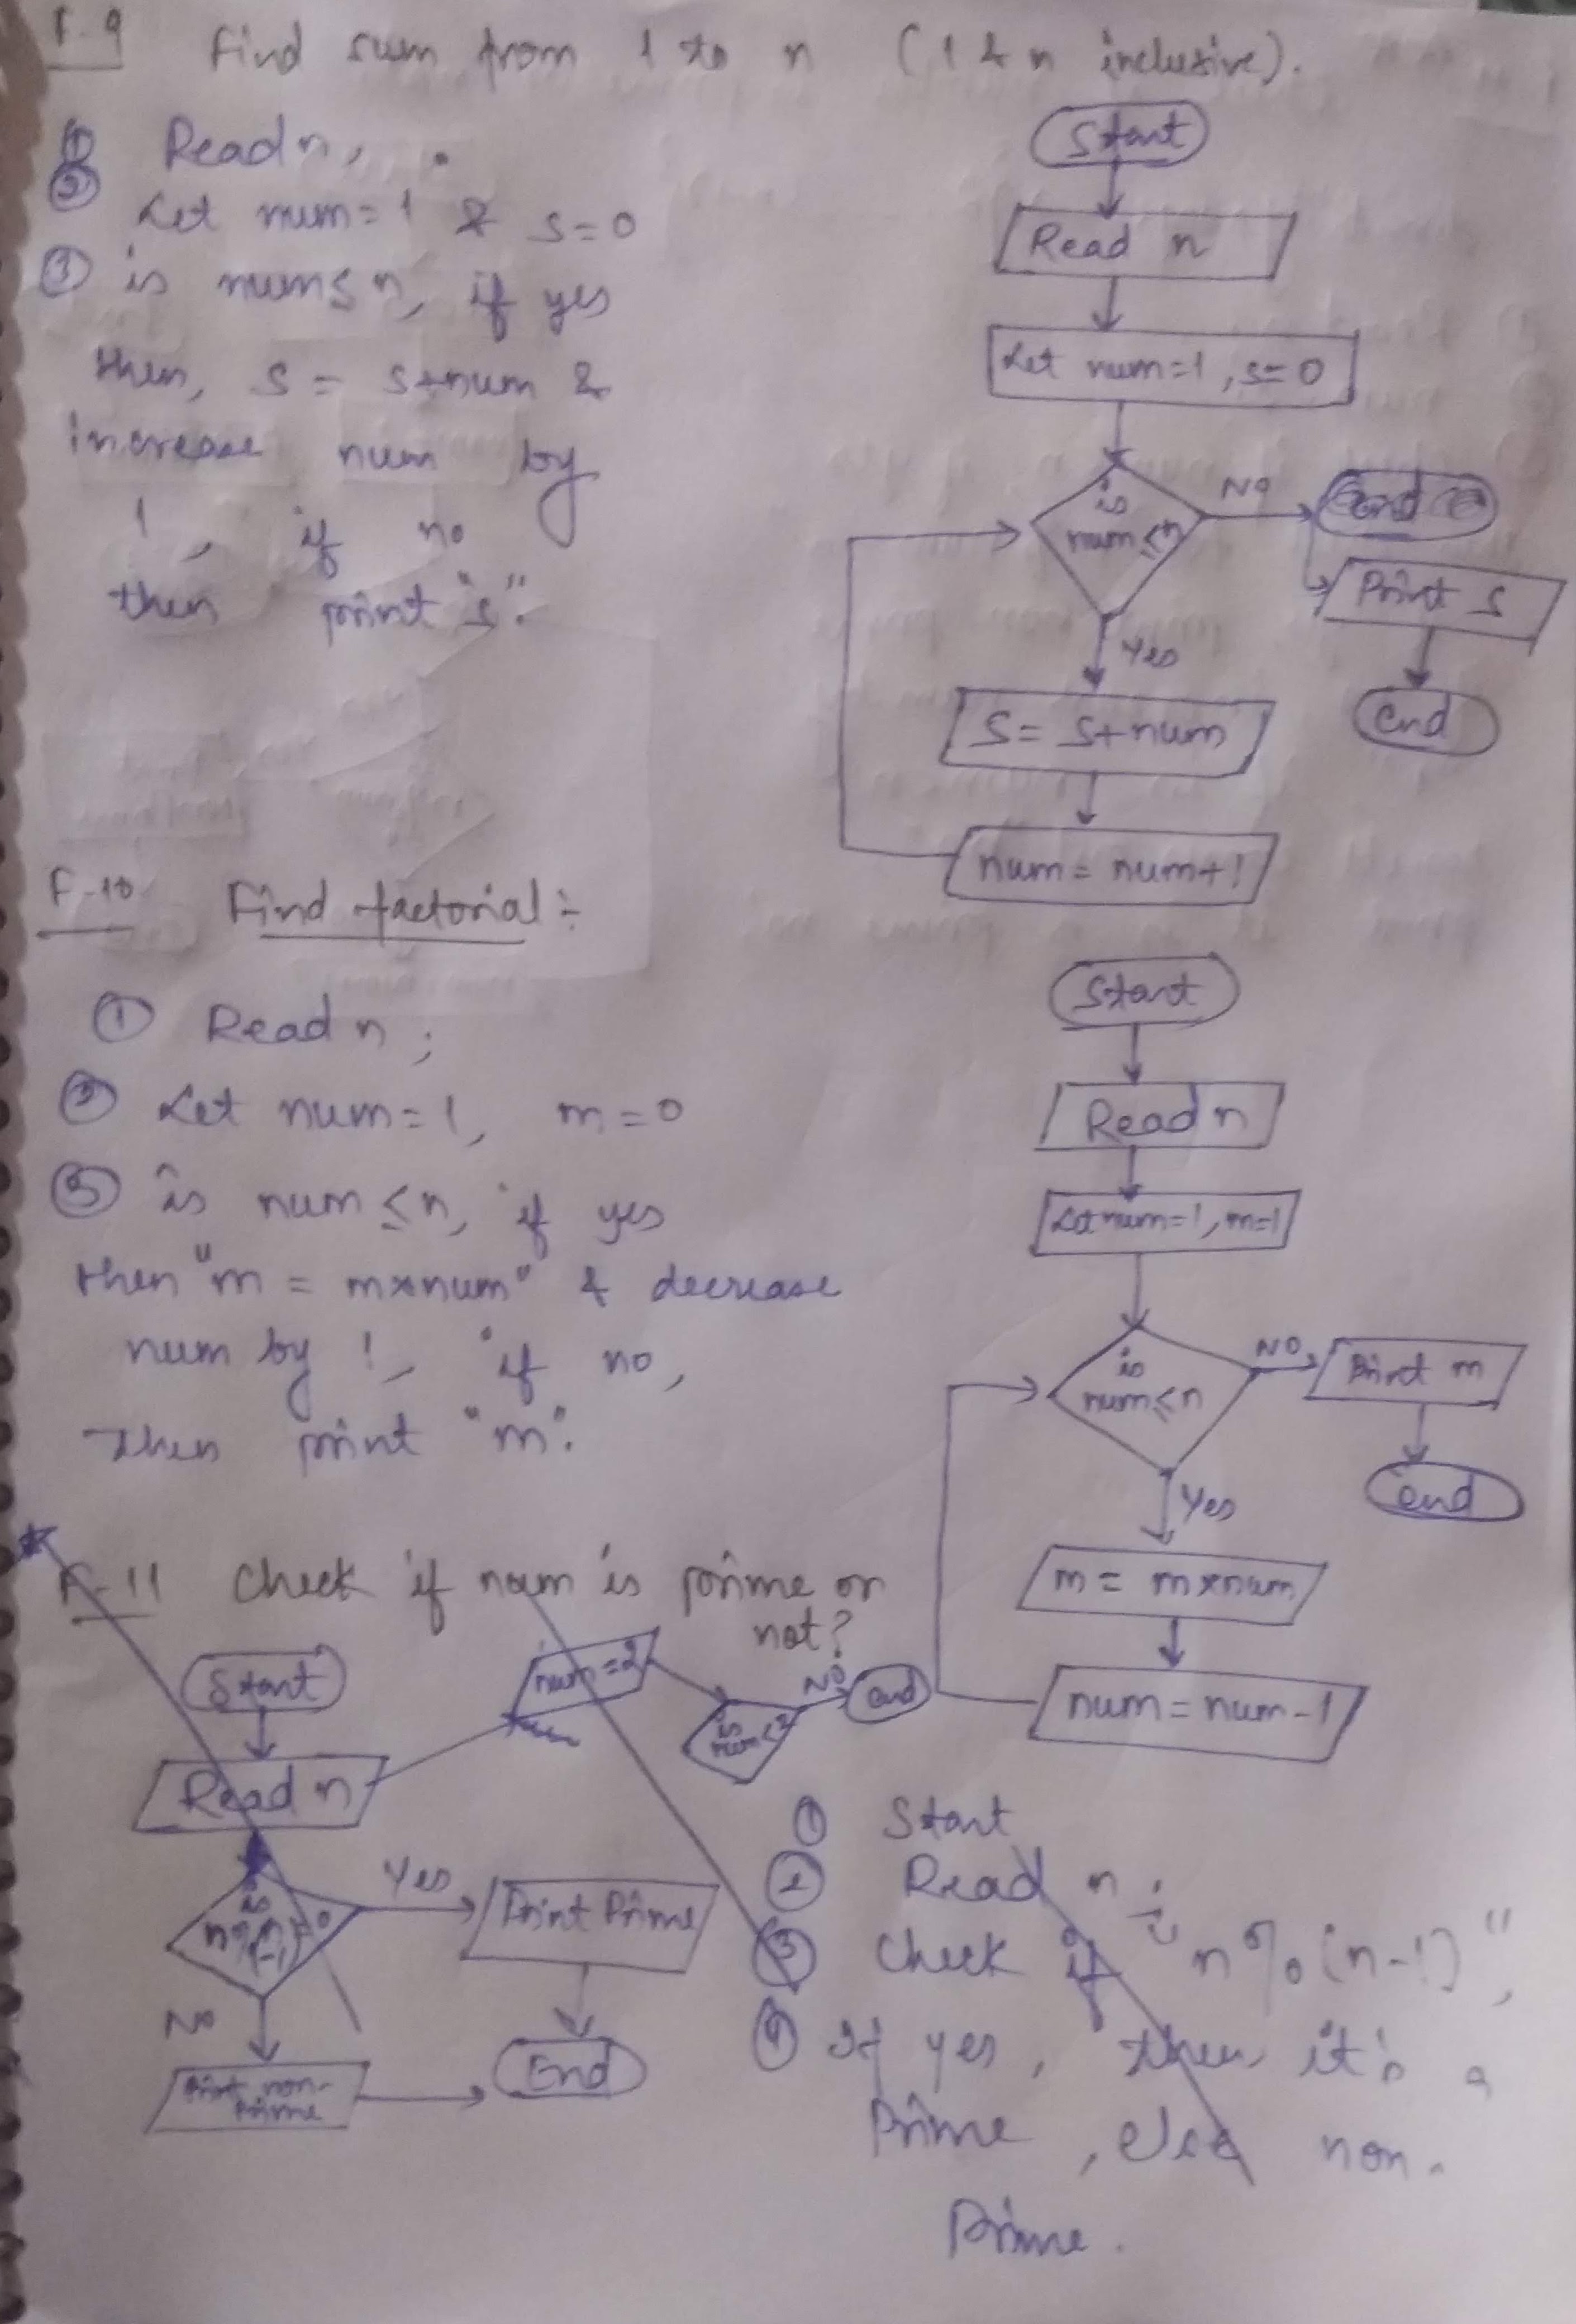 F.9 Find sum from 1 to n (1 & n inclusive).
① Read n,
② Let num=1 & s=0
③ is num≤n, if yes
then, s = s+num &
increase num by
1, if no
then print "s".
Start
Read n
Let num=1, s=0
is
num≤n
No
end
Print s
end
Yes
S= S+num
num= num+1
F-10 Find factorial :-
① Read n ;
② Let num=1, m=0
③ is num ≤n, if yes
then "m = m*num" & decrease
num by 1, if no,
then print "m".
Start
Read n
Let num=1, m=1
is
num≤n
NO
Print m
end
Yes
m= m*num
num=num-1
F-11 Check if num is prime or
not?
Start
Read n
num=2
is
num<2
No
end
is
Yes
Print Prime
End
No
Print non-
Prime
① Start
② Read n ;
③ Check if "n%(n-1)",
④ If yes, then it's a
Prime, else non-
Prime.